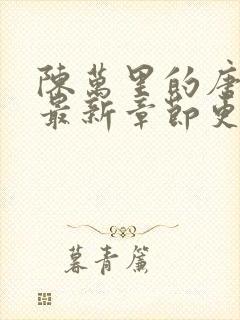 陳萬里的唐
最新章節更
暮青簾